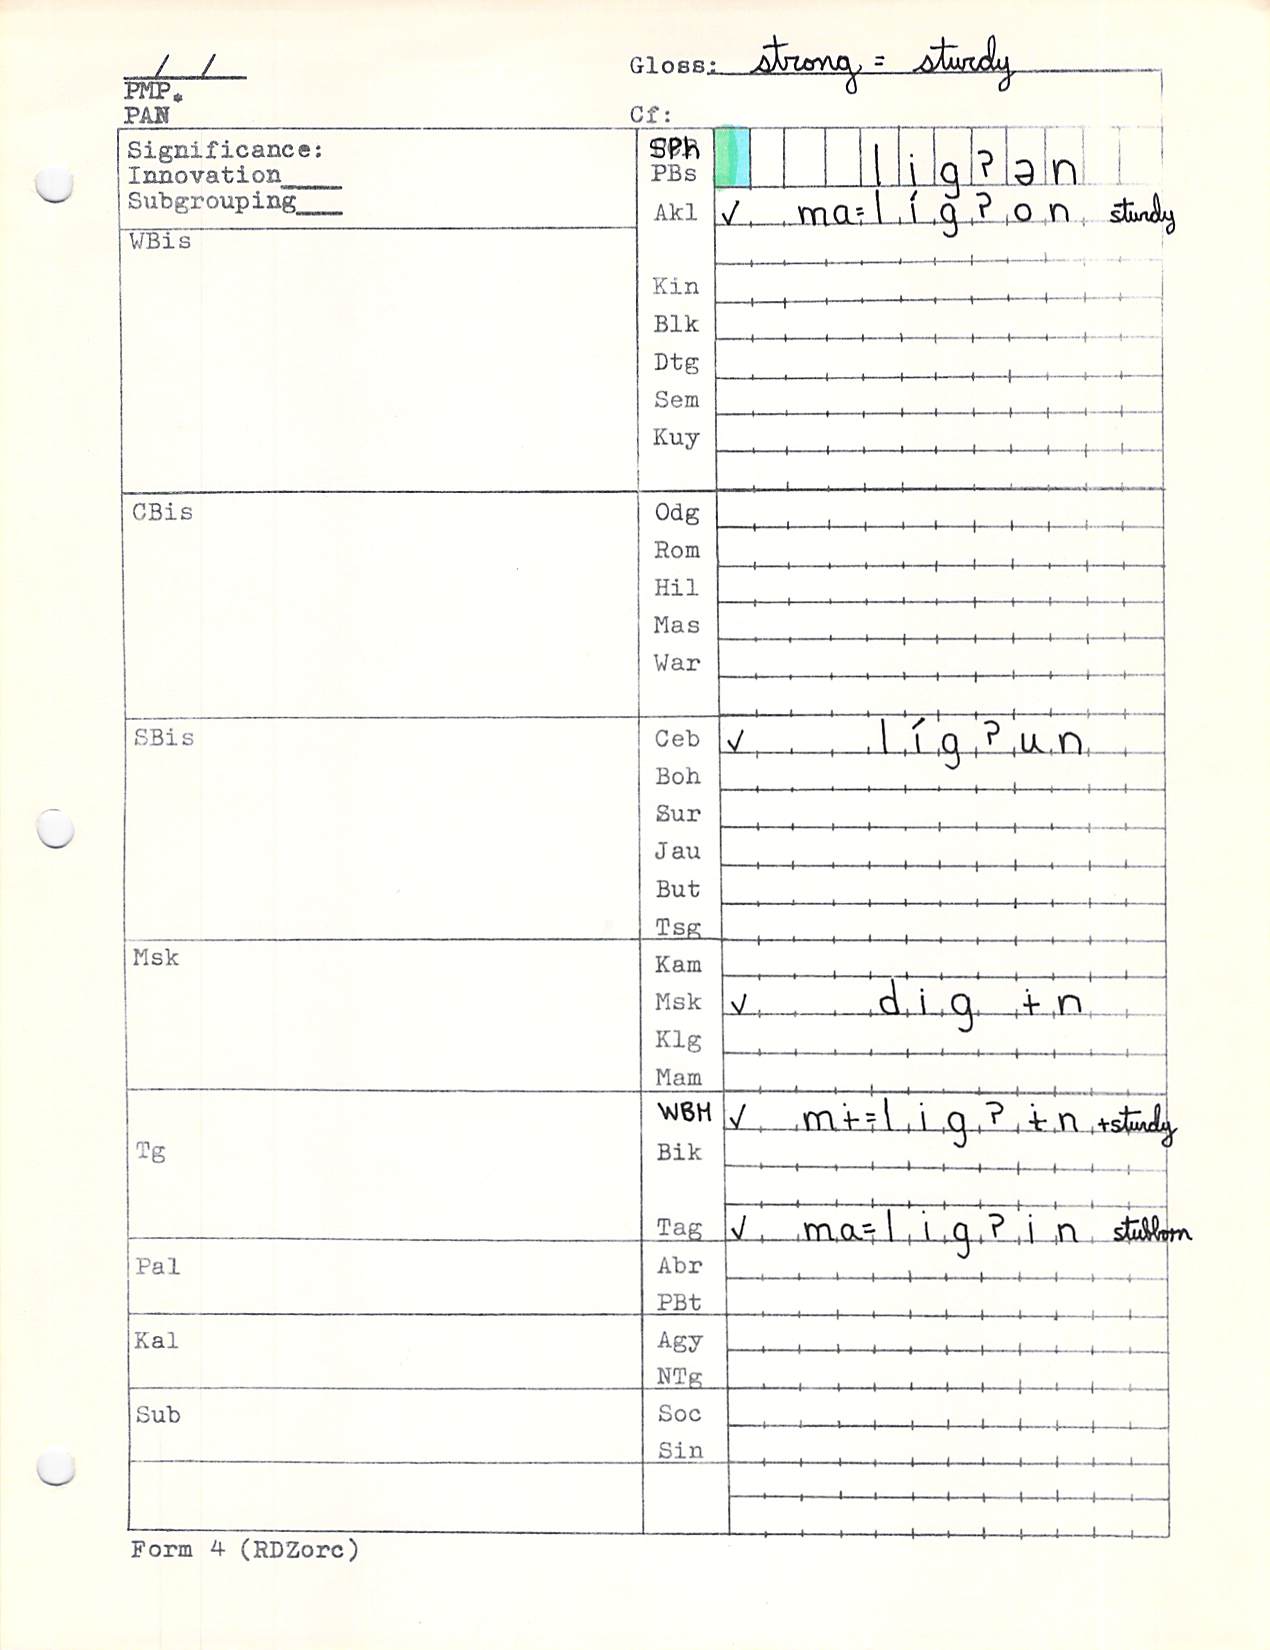 / /
Gloss: strong = sturdy
PMP.
PAN
Cf:
Significance:
SPh
Innovation____
PBs ligʔən
Subgrouping____
Akl ✓ ma=lígʔon sturdy
WBis
Kin
Blk
Dtg
Sem
Kuy
CBis
Odg
Rom
Hil
Mas
War
SBis
Ceb ✓ lígʔun
Boh
Sur
Jau
But
Tsg
Msk
Kam
Msk ✓ dig ɨn
Klg
Mam
WBM ✓ mɨ=ligʔɨn +sturdy
Tg
Bik
Tag ✓ ma=ligʔin stubborn
Pal
Abr
PBt
Kal
Agy
NTg
Sub
Soc
Sin
Form 4 (RDZorc)